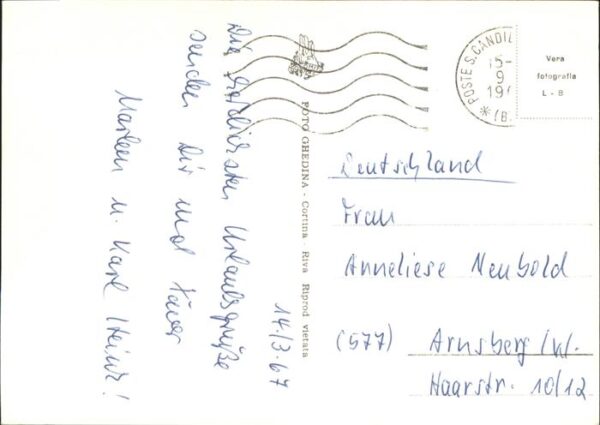 14./3.67
Die herzlichsten Urlaubsgrüße
senden Dir und
Marleen u. Karl Heinz!
FOTO GHEDINA - Cortina - Riva Riprod vietata
POSTE S. CANDI
15-
9
19
*(B
Vera
fotografia
L - B
Deutschland
Frau
Anneliese Neubold
(577) Arnsberg /W.
Haarstr. 10/12